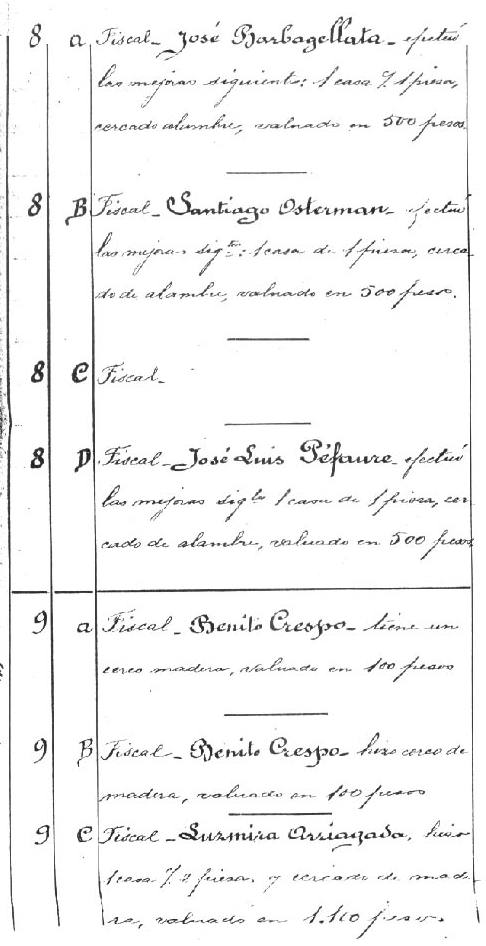 8 a Fiscal - José Barbagellata - efectuó
las mejoras siguient: 1 casa % 1 pieza,
cercado alambre, valuado en 500 pesos.
8 B Fiscal - Santiago Osterman - efectuó
las mejoras sigte: 1 casa de 1 pieza, cerca-
do de alambre, valuado en 500 pesos.
8 C Fiscal -
8 D Fiscal - José Luis Péfaure - efectuó
las mejoras sigte 1 casa de 1 pieza, cer-
cado de alambre, valuado en 500 pesos
9 a Fiscal - Benito Crespo - tiene un
cerco madera, valuado en 100 pesos
9 B Fiscal - Benito Crespo - hizo cerco de
madera, valuado en 100 pesos
9 C Fiscal - Luzmira Arriagada, hizo
1 casa % 2 piezas y cercado de made-
ra, valuado en 1.110 pesos.